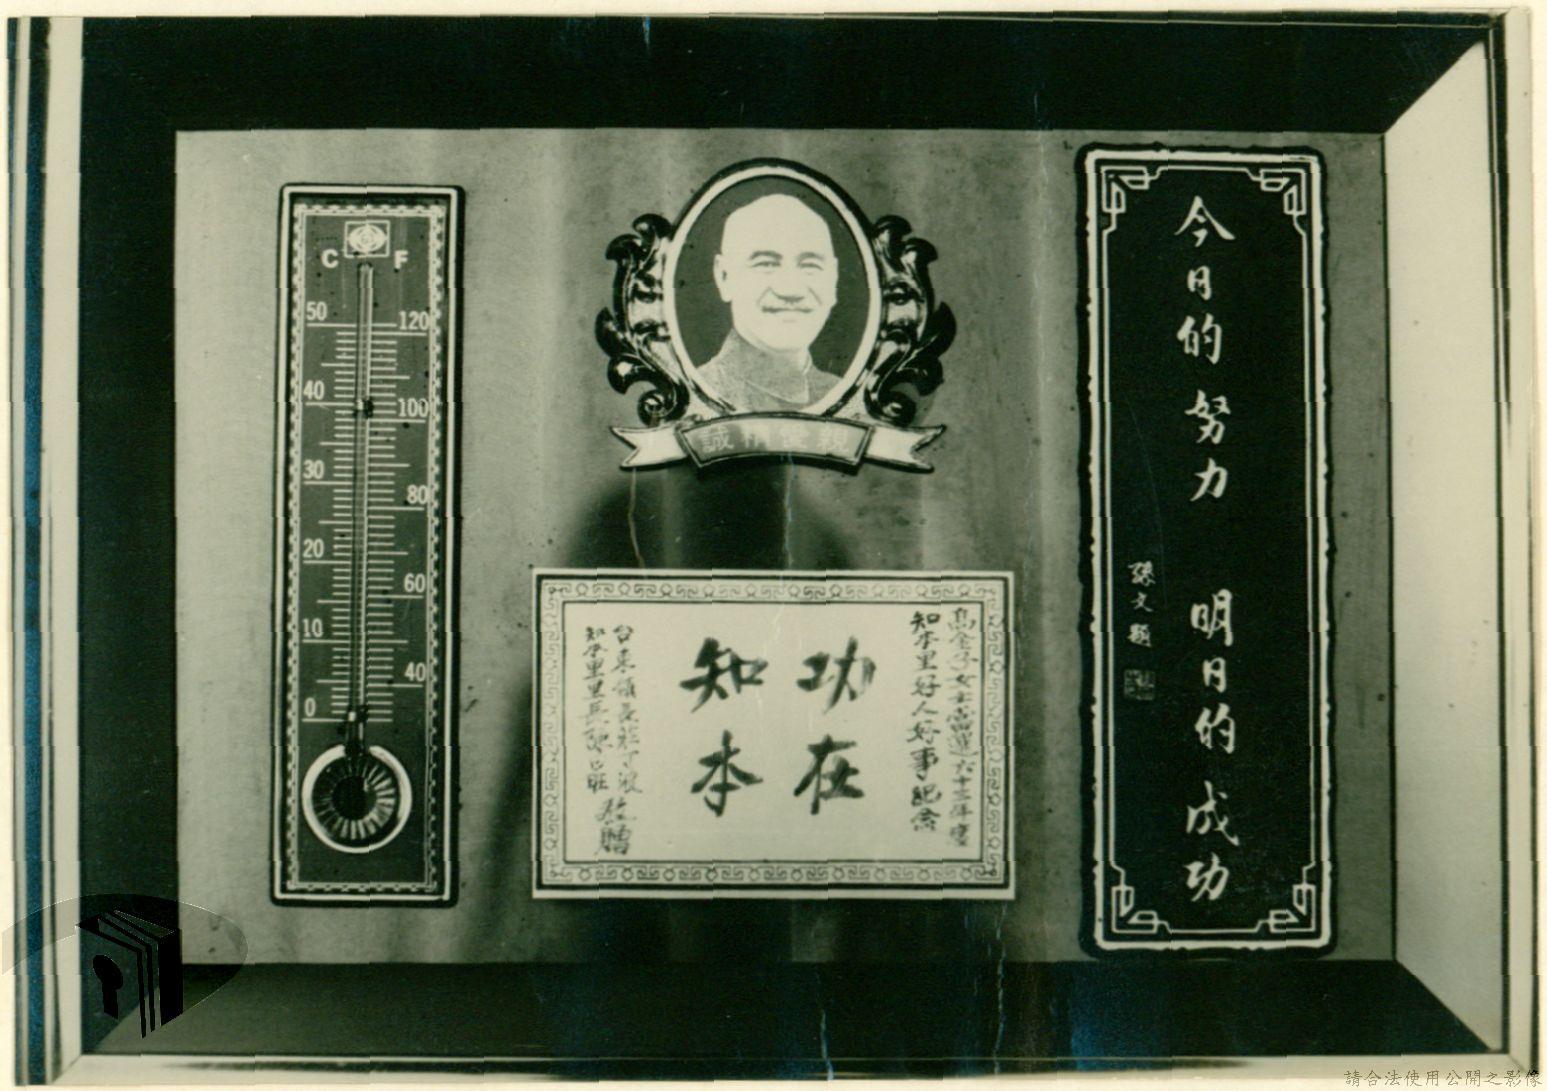 C F
50 120
40 100
30 80
20 60
10 40
0
親愛精誠
今日的努力 明日的成功
孫文題
女士當選六十三年度
知本里好人好事紀念
功在
知本
台東鎮長
知本里里長
敬贈
請合法使用公開之影像